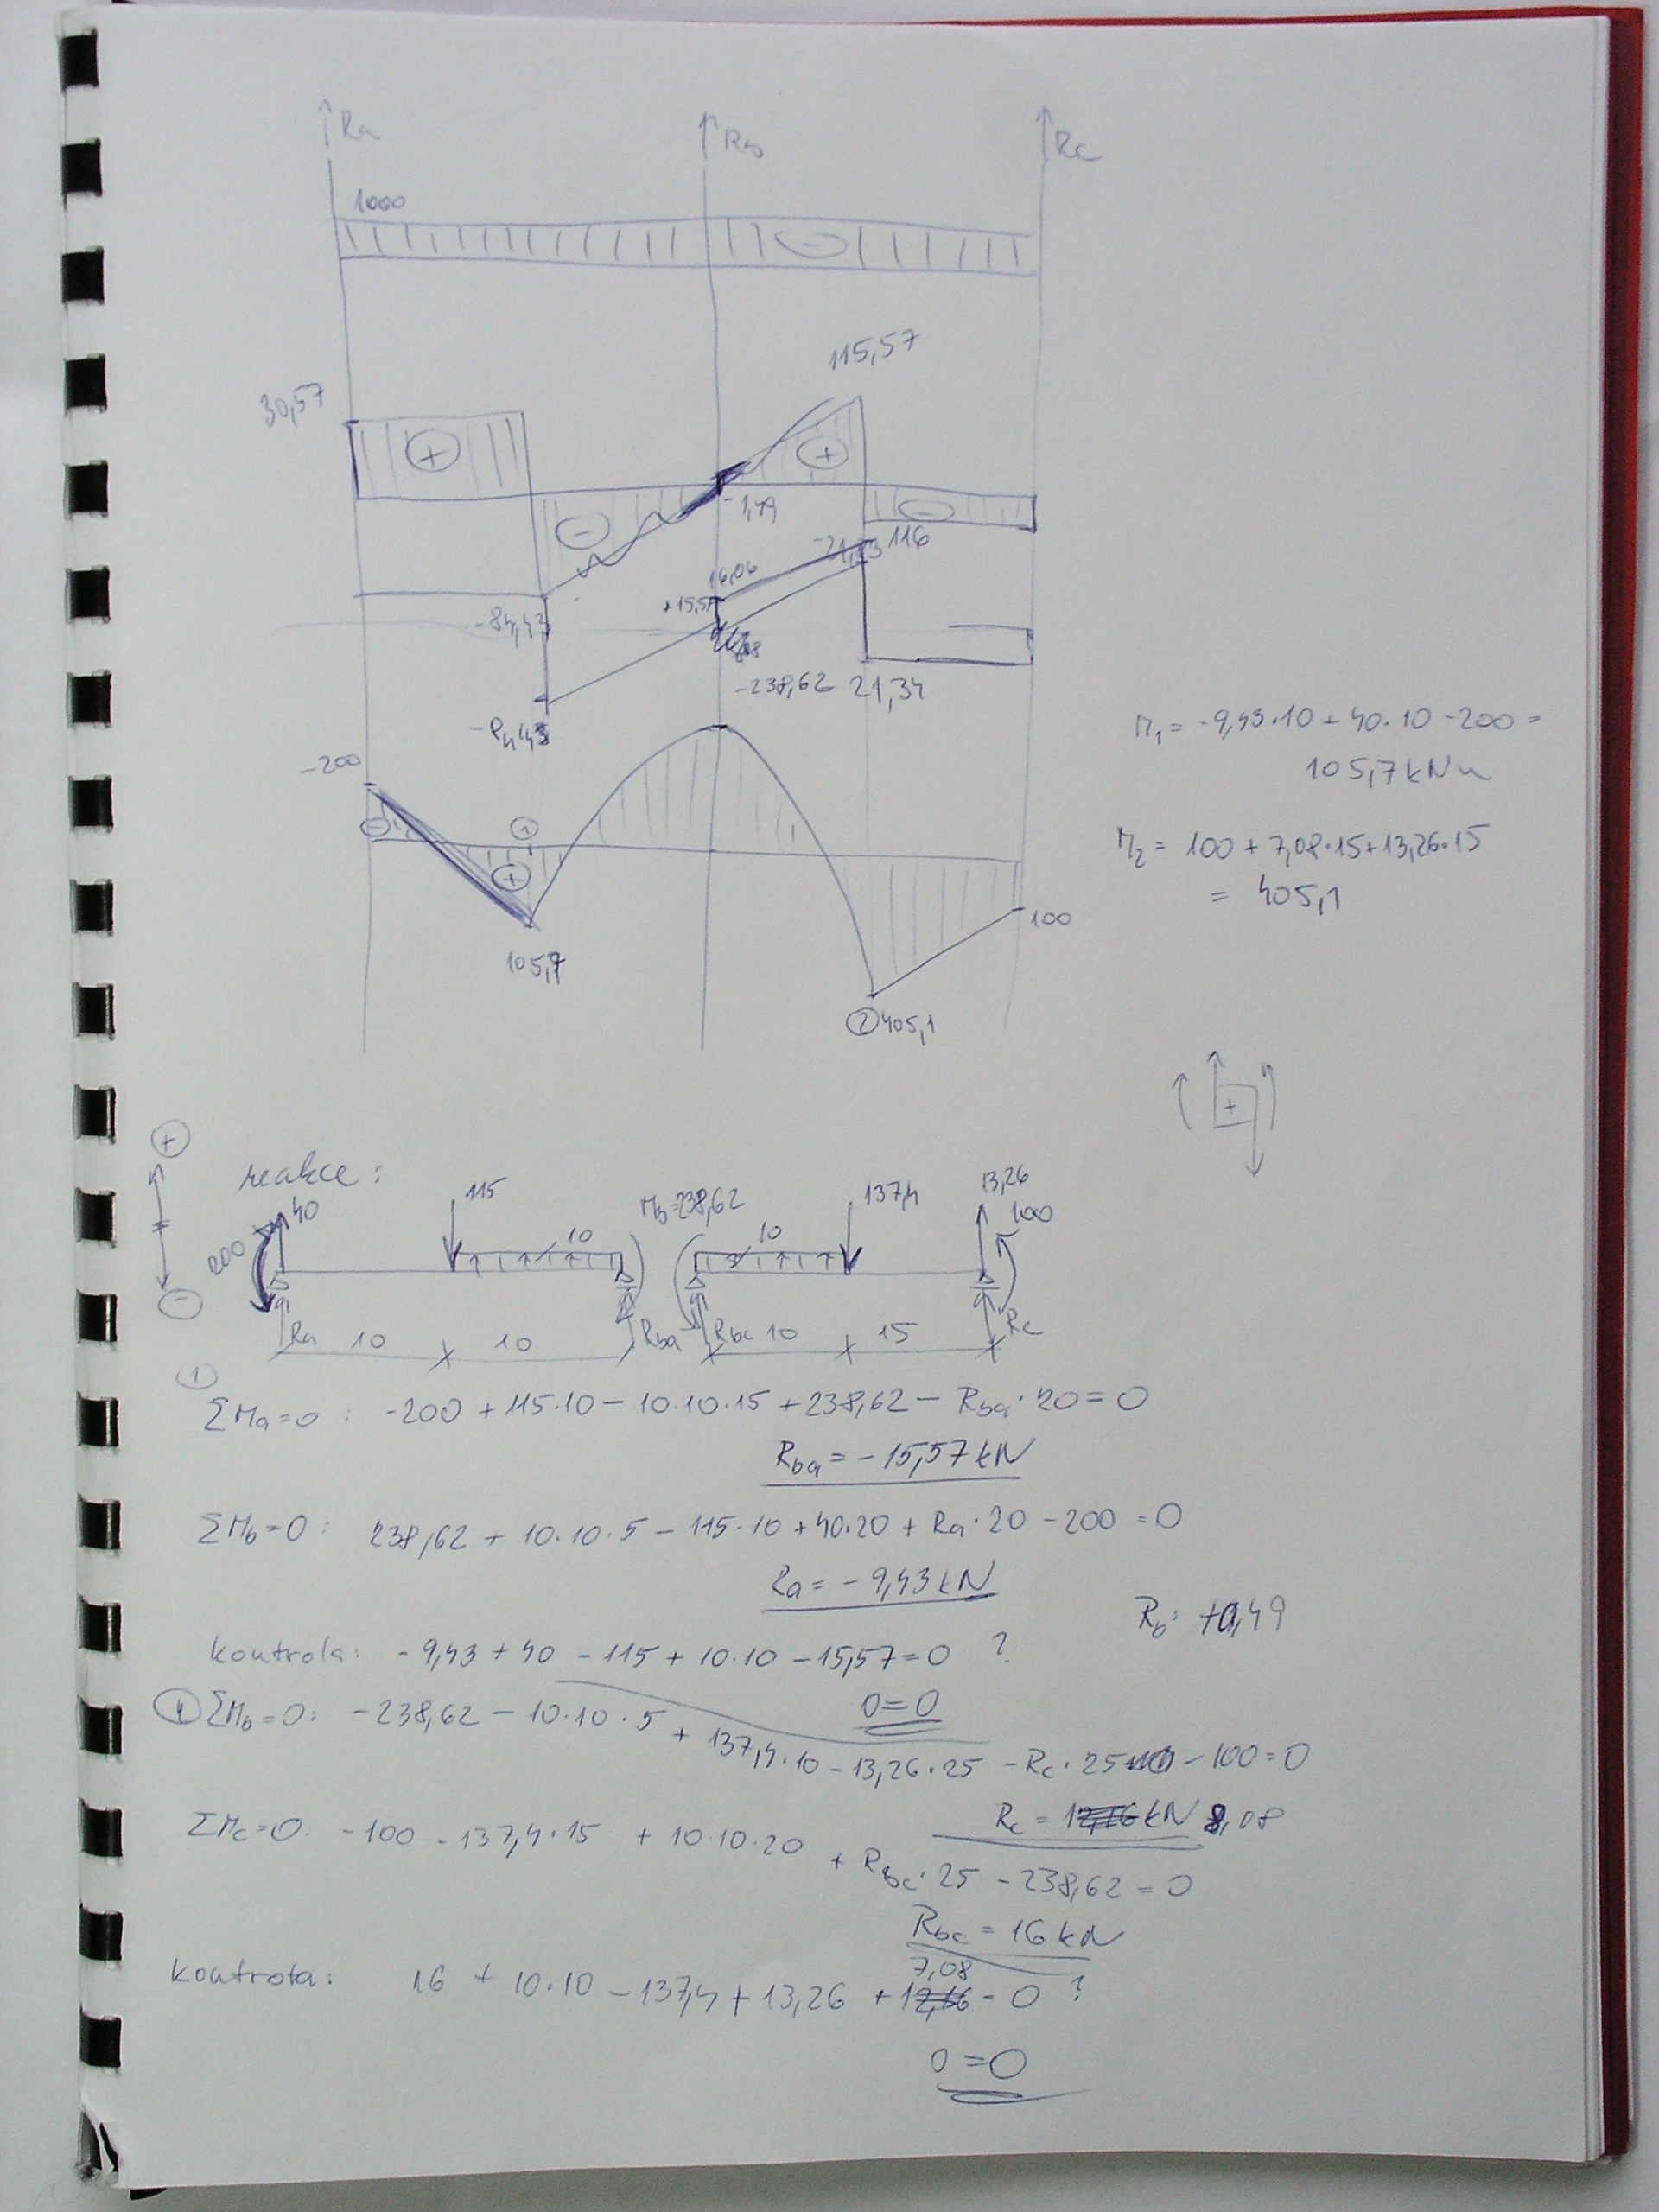 Ra
Rb
Rc
1000
115,57
30,57
+
+
-
-
-1,49
-84,43
16,06
+15,57
116
-238,62
21,34
-84,43
-200
-
1
+
105,7
100
2 405,1
M1 = -9,43·10 + 40·10 - 200 =
105,7 kNm
M2 = 100 + 7,08·15 + 13,26·15
= 405,1
+
+
-
reakce:
40
200
115
10
Mb=238,62
10
137,4
13,26
100
Ra 10 10 Rba Rbc 10 15 Rc
1
ΣMa=0 : -200 + 115·10 - 10·10·15 + 238,62 - Rba·20 = 0
Rba = -15,57 kN
ΣMb=0 : 238,62 + 10·10·5 - 115·10 + 40·20 + Ra·20 - 200 = 0
Ra = -9,43 kN
Rb: +0,49
kontrola: -9,43 + 40 - 115 + 10·10 - 15,57 = 0 ?
0=0
ΣMb=0: -238,62 - 10·10·5 + 137,4·10 - 13,26·25 - Rc·25 - 100 = 0
Rc = kN 8,08
ΣMc=0: -100 - 137,4·15 + 10·10·20 + Rbc·25 - 238,62 = 0
Rbc = 16 kN
7,08
kontrola: 16 + 10·10 - 137,4 + 13,26 + 12,16 = 0 ?
0=0